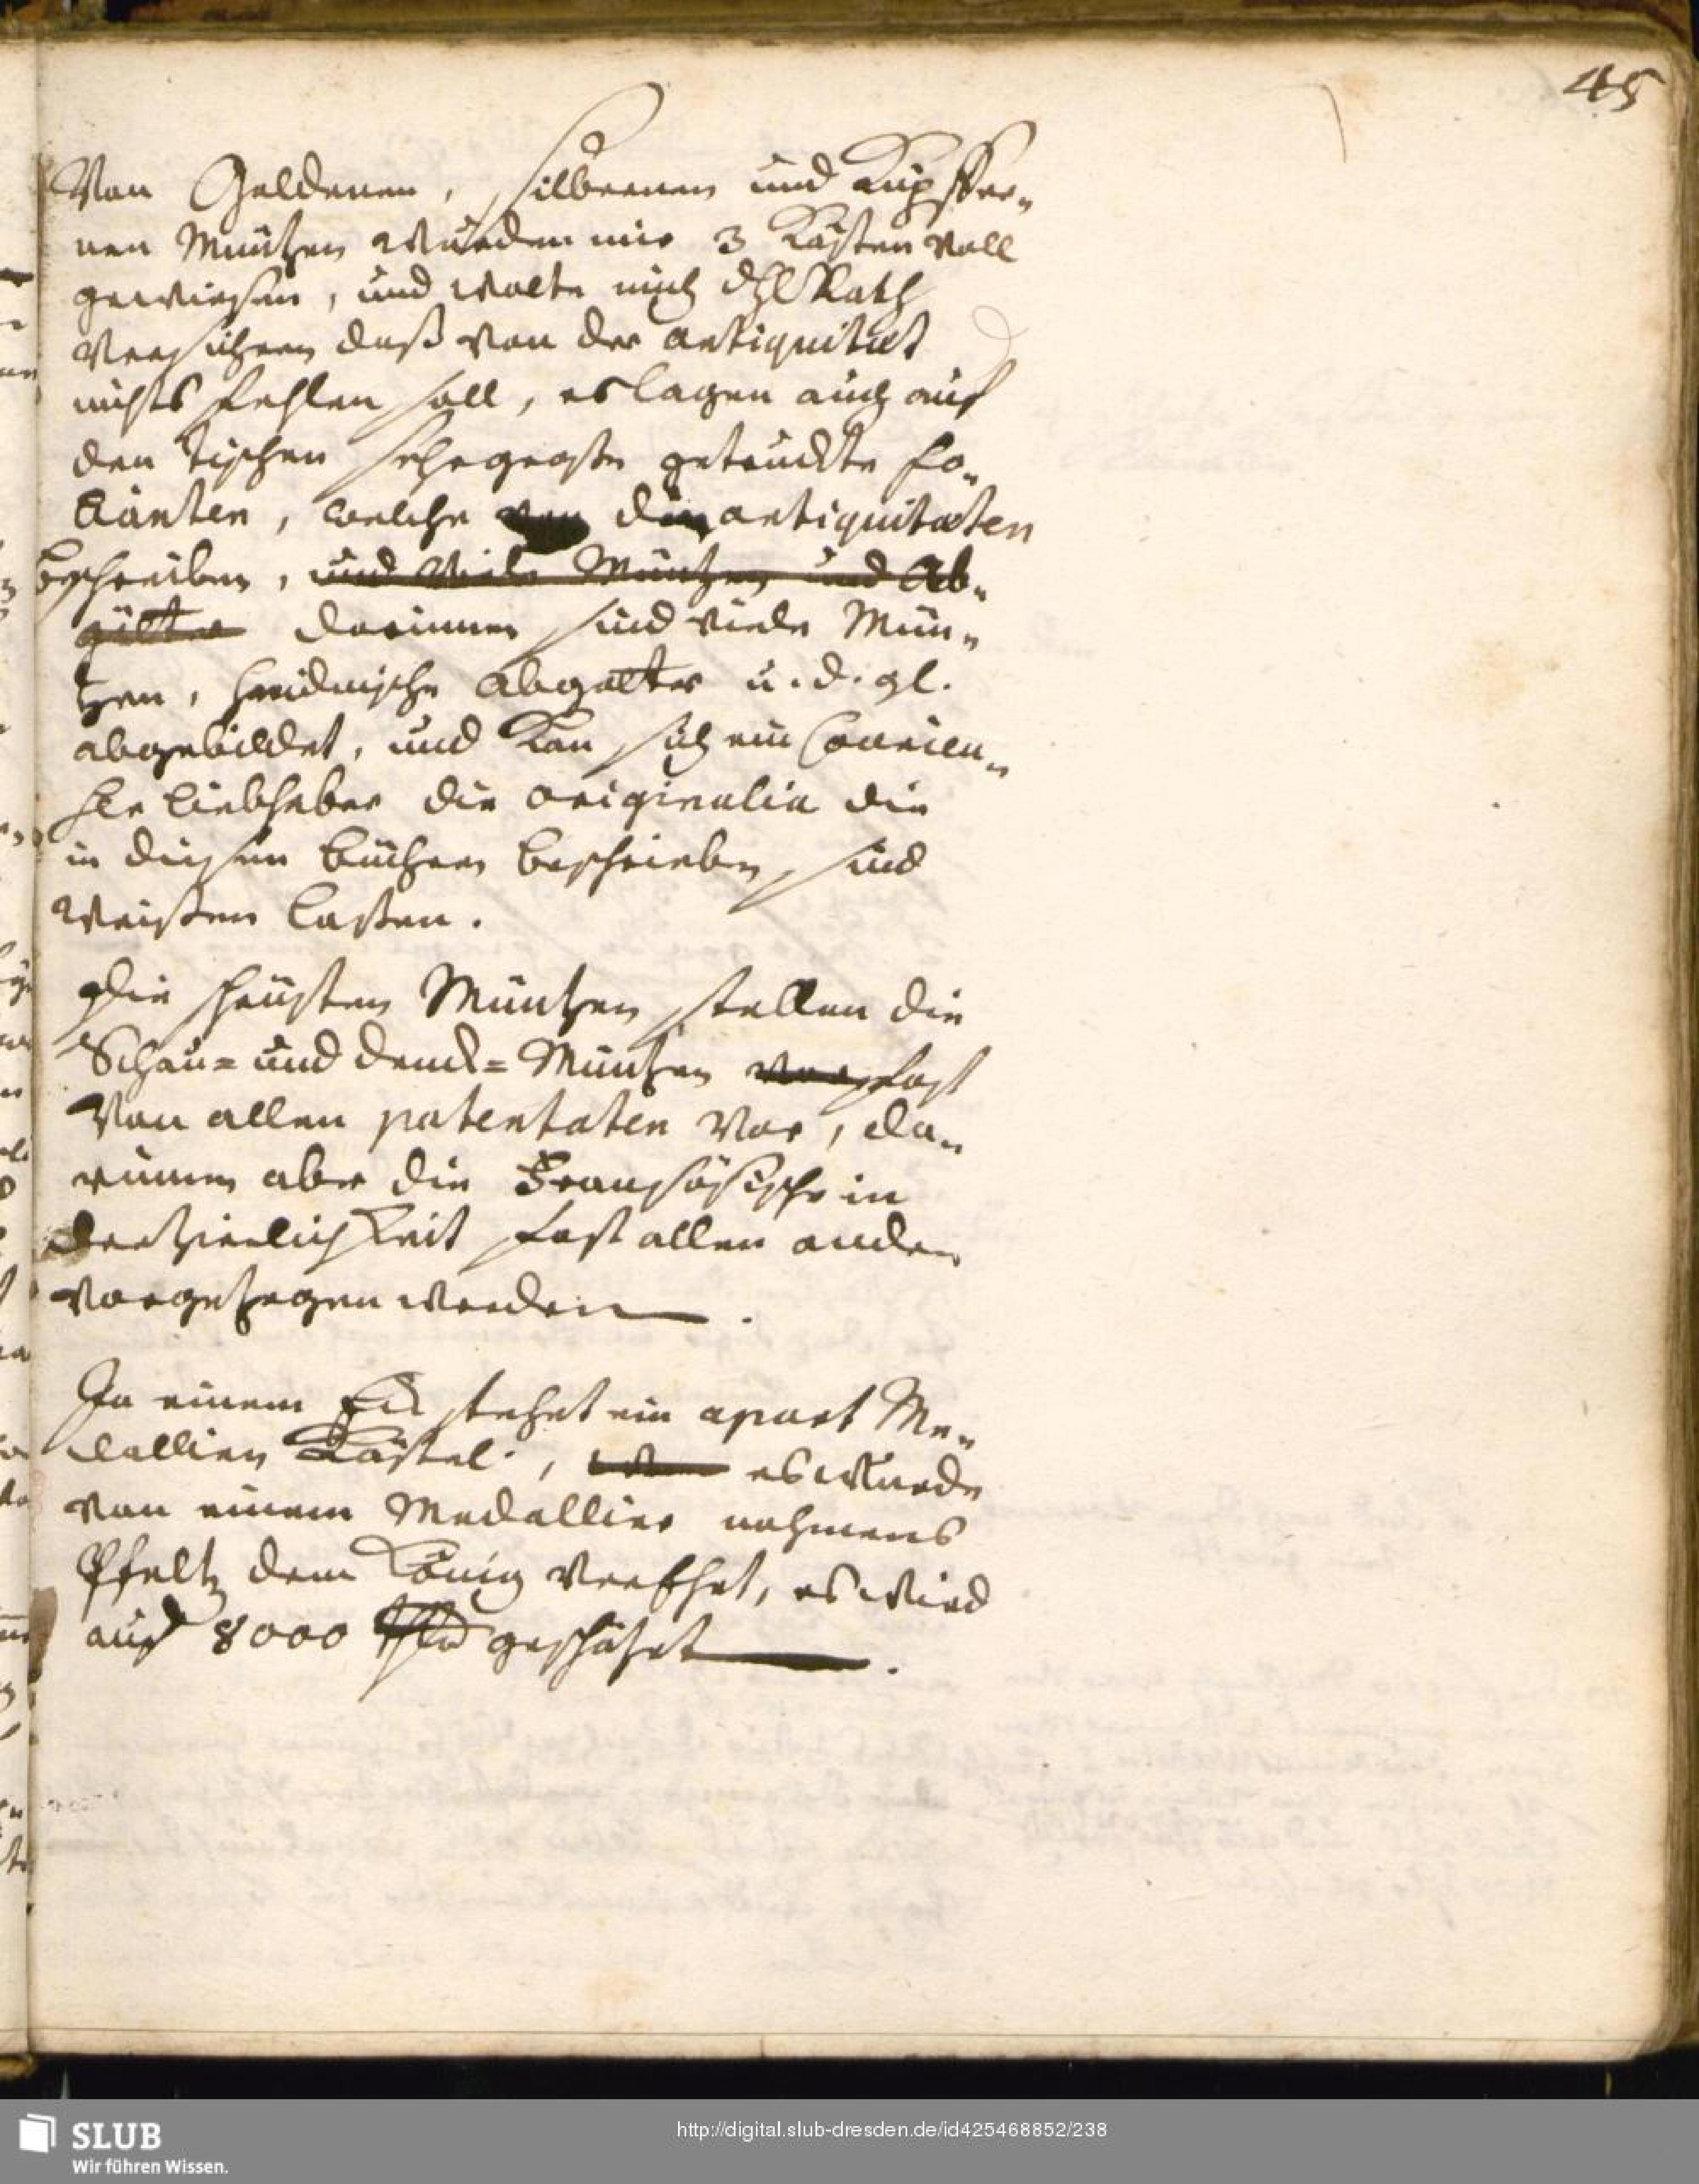 45
Von Goldenen, silbernen und Kupffer-
nen Müntzen wurden mir 3 Kästen voll
gewiesen, und wolte mich H Rath
versichern daß von der antiquität
nichts fehlen soll, es lagen auch auf
den Tischen sehr große getruckte fo-
lianten, welche von den antiquitæten
beschreiben, und viele Müntzen und Ab-
götter darinnen sind viele Mün-
tzen, heidnische Abgötter u. d. gl.
abgebildet, und kan sich ein Courieu-
ser liebhaber die originalia die
in diesen büchern beschrieben, sind
weißen laßen.
Die schönsten Müntzen stellen die
Schau= und denck= Müntzen fast
von allen potentaten vor, da-
runnen aber die Frantzösische in
der Zierlichkeit fast allen andern
vorgezogen werden.
In einem Eck stehet ein apart Me-
dallien Kästel, es wurde
von einem Medallier nahmens
Pfaltz dem König verehrt, es wird
auf 8000 geschätzet.
SLUB
Wir führen Wissen.
http://digital.slub-dresden.de/id425468852/238